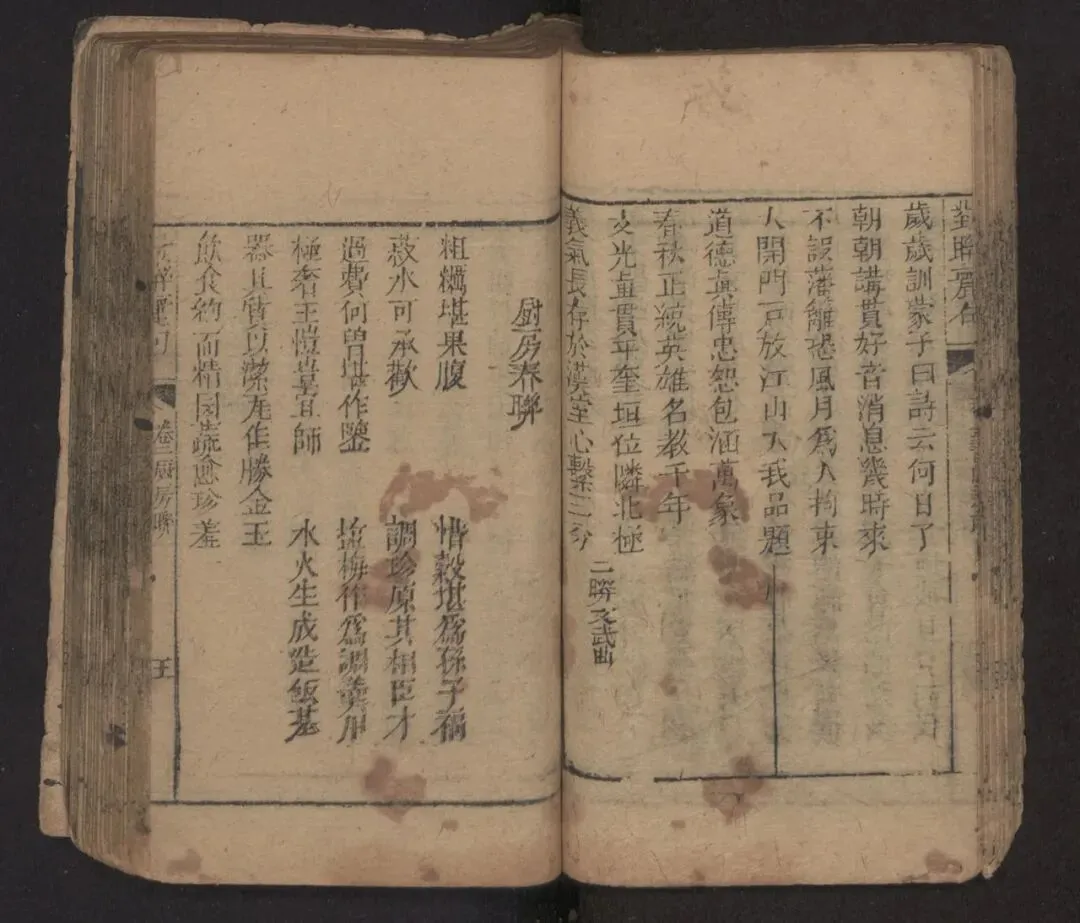 歲歲訓蒙子曰詩云何日了
朝朝講貫好音消息幾時來
不設藩籬恐風月爲人拘束
大開門戸放江山入我品題
道德眞傳忠恕包涵萬象
春秋正統英雄名教千年
文光直貫年奎垣位隣北極
義氣長存於漢室心繫三分
二聯文武曲
廚房春聯
粗糲堪果腹 惜穀堪爲孫子福
菽水可承歡 調珍原其相臣才
過費何曽堪作鑒 塩梅作爲調羹用
極奢王愷豈宜師 水火生成造飯基
器具質以潔瓦缶勝金玉
飲食約而精園蔬愈珍羞
卷三厨房聯